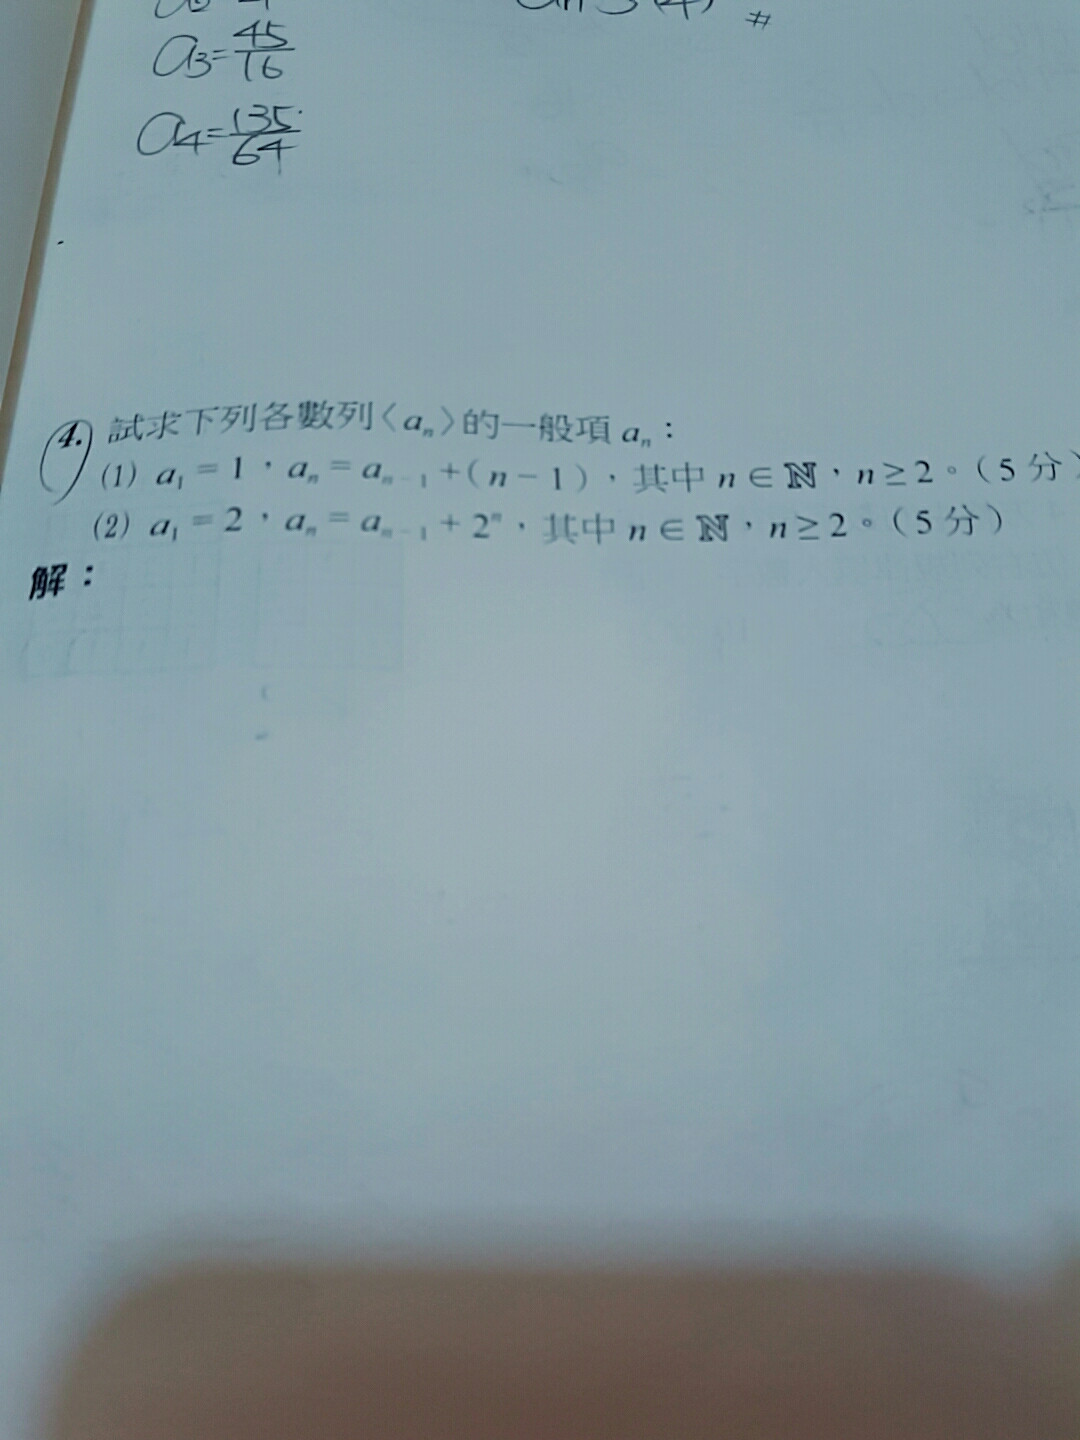 a₃=45/16
a₄=135/64
4. 試求下列各數列〈aₙ〉的一般項 aₙ：
(1) a₁ = 1，aₙ = aₙ₋₁ +(n−1)，其中 n ∈ ℕ，n ≥ 2。(5 分)
(2) a₁ = 2，aₙ = aₙ₋₁ + 2ⁿ，其中 n ∈ ℕ，n ≥ 2。(5 分)
解：